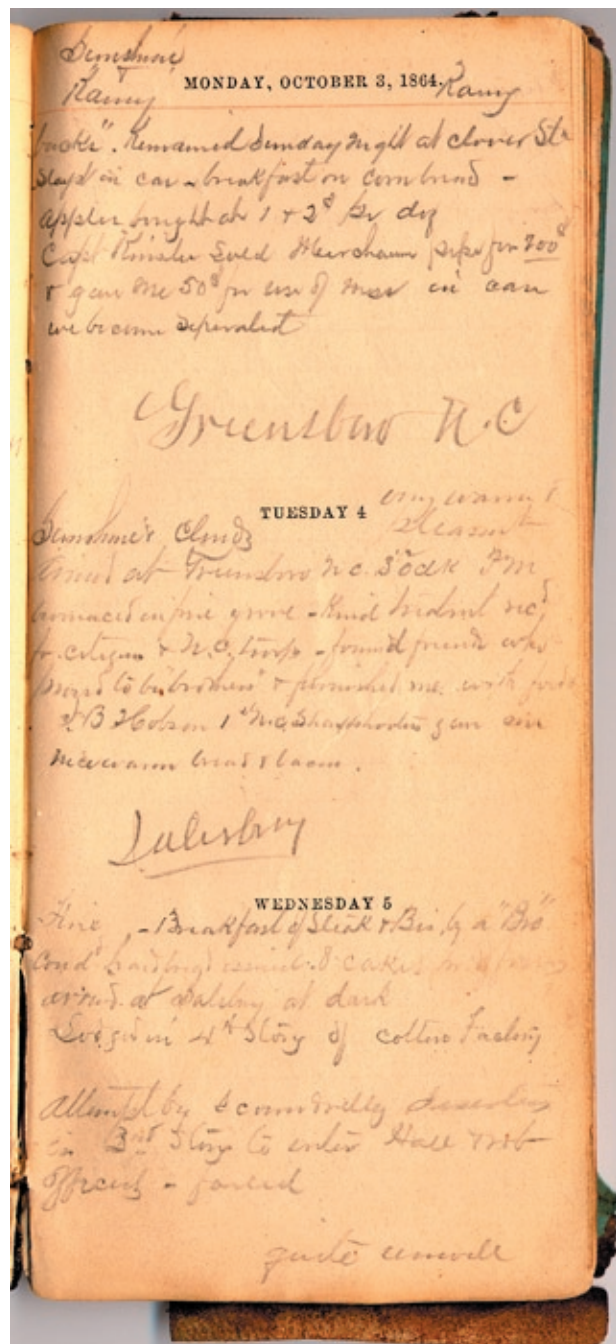 Sunshine
&
Rainy MONDAY, OCTOBER 3, 1864. Rainy
backs". Remained Sunday night at clover Sta
Slept in car - breakfast on cornbread -
Apples bought at 1 & 2$ pr doz
Capt Kinsler Sold Meerchaum pipe for 200$
& gave me 50$ for use of mess in case
we become Seperated
Greensboro N.C
TUESDAY 4 very warm &
pleasant
Sunshine & Clouds
Arrived at Greensboro N.C. 5 oclk P.M
bivouaced in pine grove - Kind tredmt recd
fr. citizens & N.C. troops - found friends who
proved to be "brothers" & furnished me with food
B Hobson 1st N.C. Sharpshooters gave
bread & bacon.
Salisbury
WEDNESDAY 5
Fine - Breakfast of Steak & Bis. by a "Bro"
issued 8 cakes
arrived at Salsbury at dark
Lodged in 4th Story of cotton Factory
Attempt by Scoundrelly deserters
in 3rd Story to enter Hall & rob
officers - foiled
quite unwell